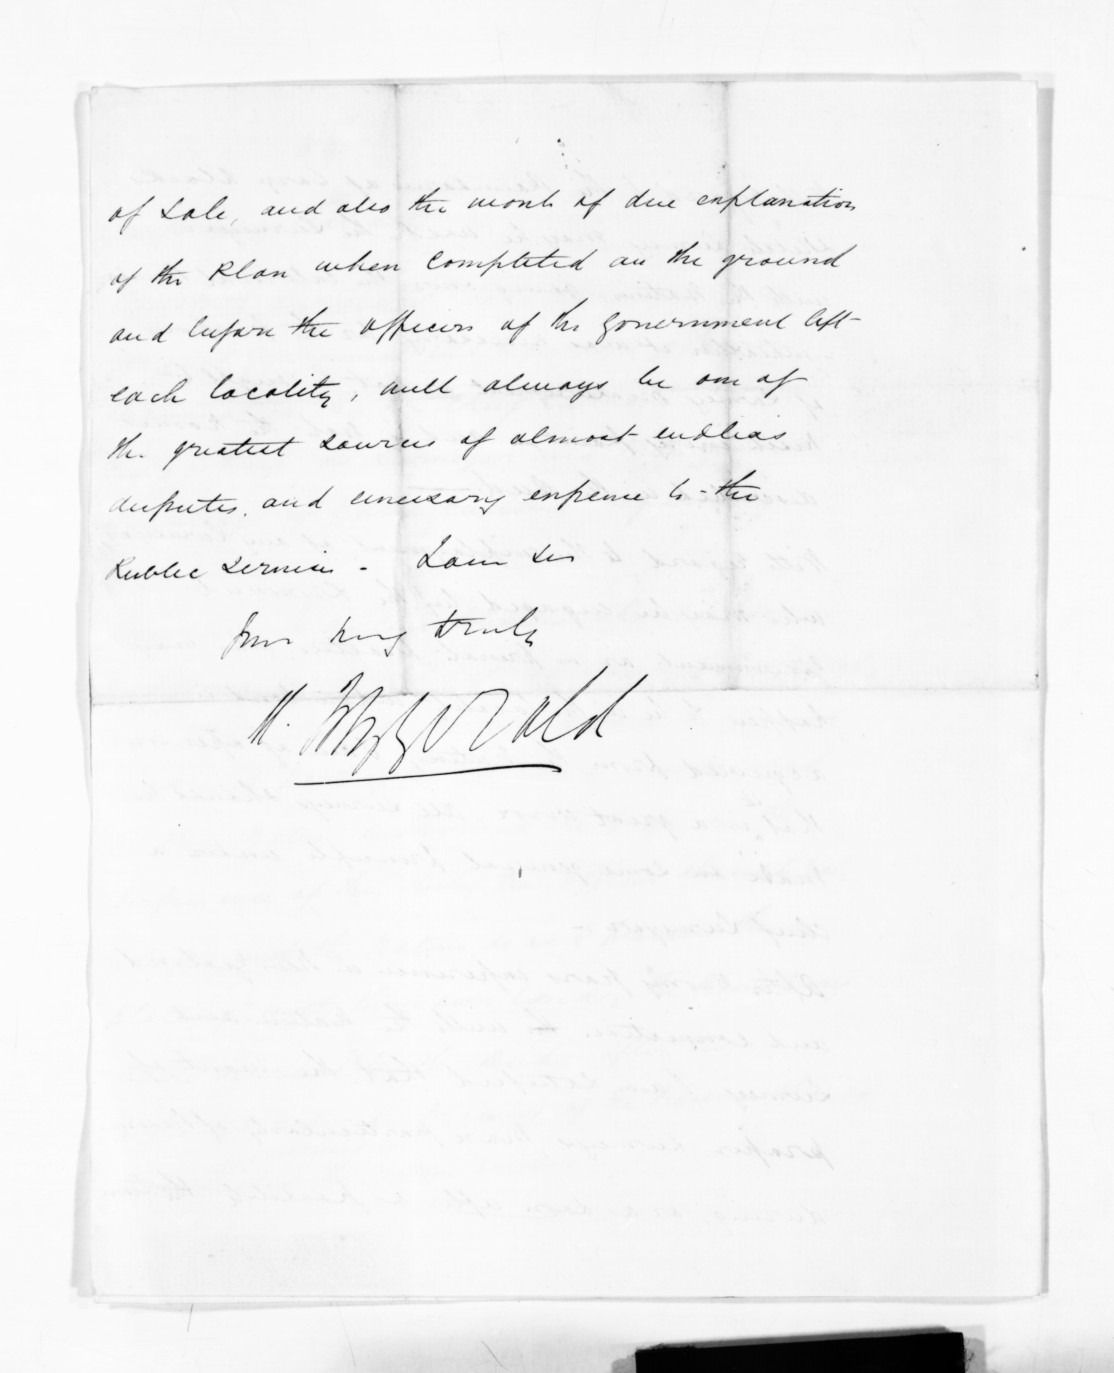 of sale, and also the want of due explanation
of the Plan when completed on the ground
and before the officers of the Government left
each locality, will always be one of
the greatest sources of almost endless
disputes, and unecesary expense to the
Public Service - I am Sir
Your very truly
Fitzgerald